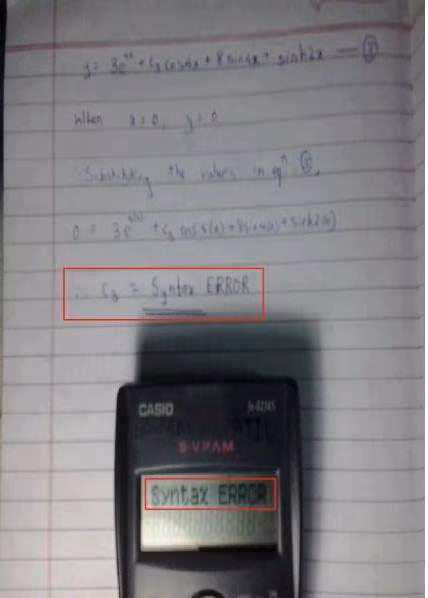 y = 3e^4x + C3 cos4x + 8 sin4x + sinh2x — ②
When x = 0, y = 0
∴ Substituting the values in eqn ②,
0 = 3e^4(0) + C3 cos 4(0) + 8 sin 4(0) + sinh 2(0)
∴ C3 = Syntax ERROR
CASIO fx-82MS
S-V.P.A.M.
Syntax ERROR